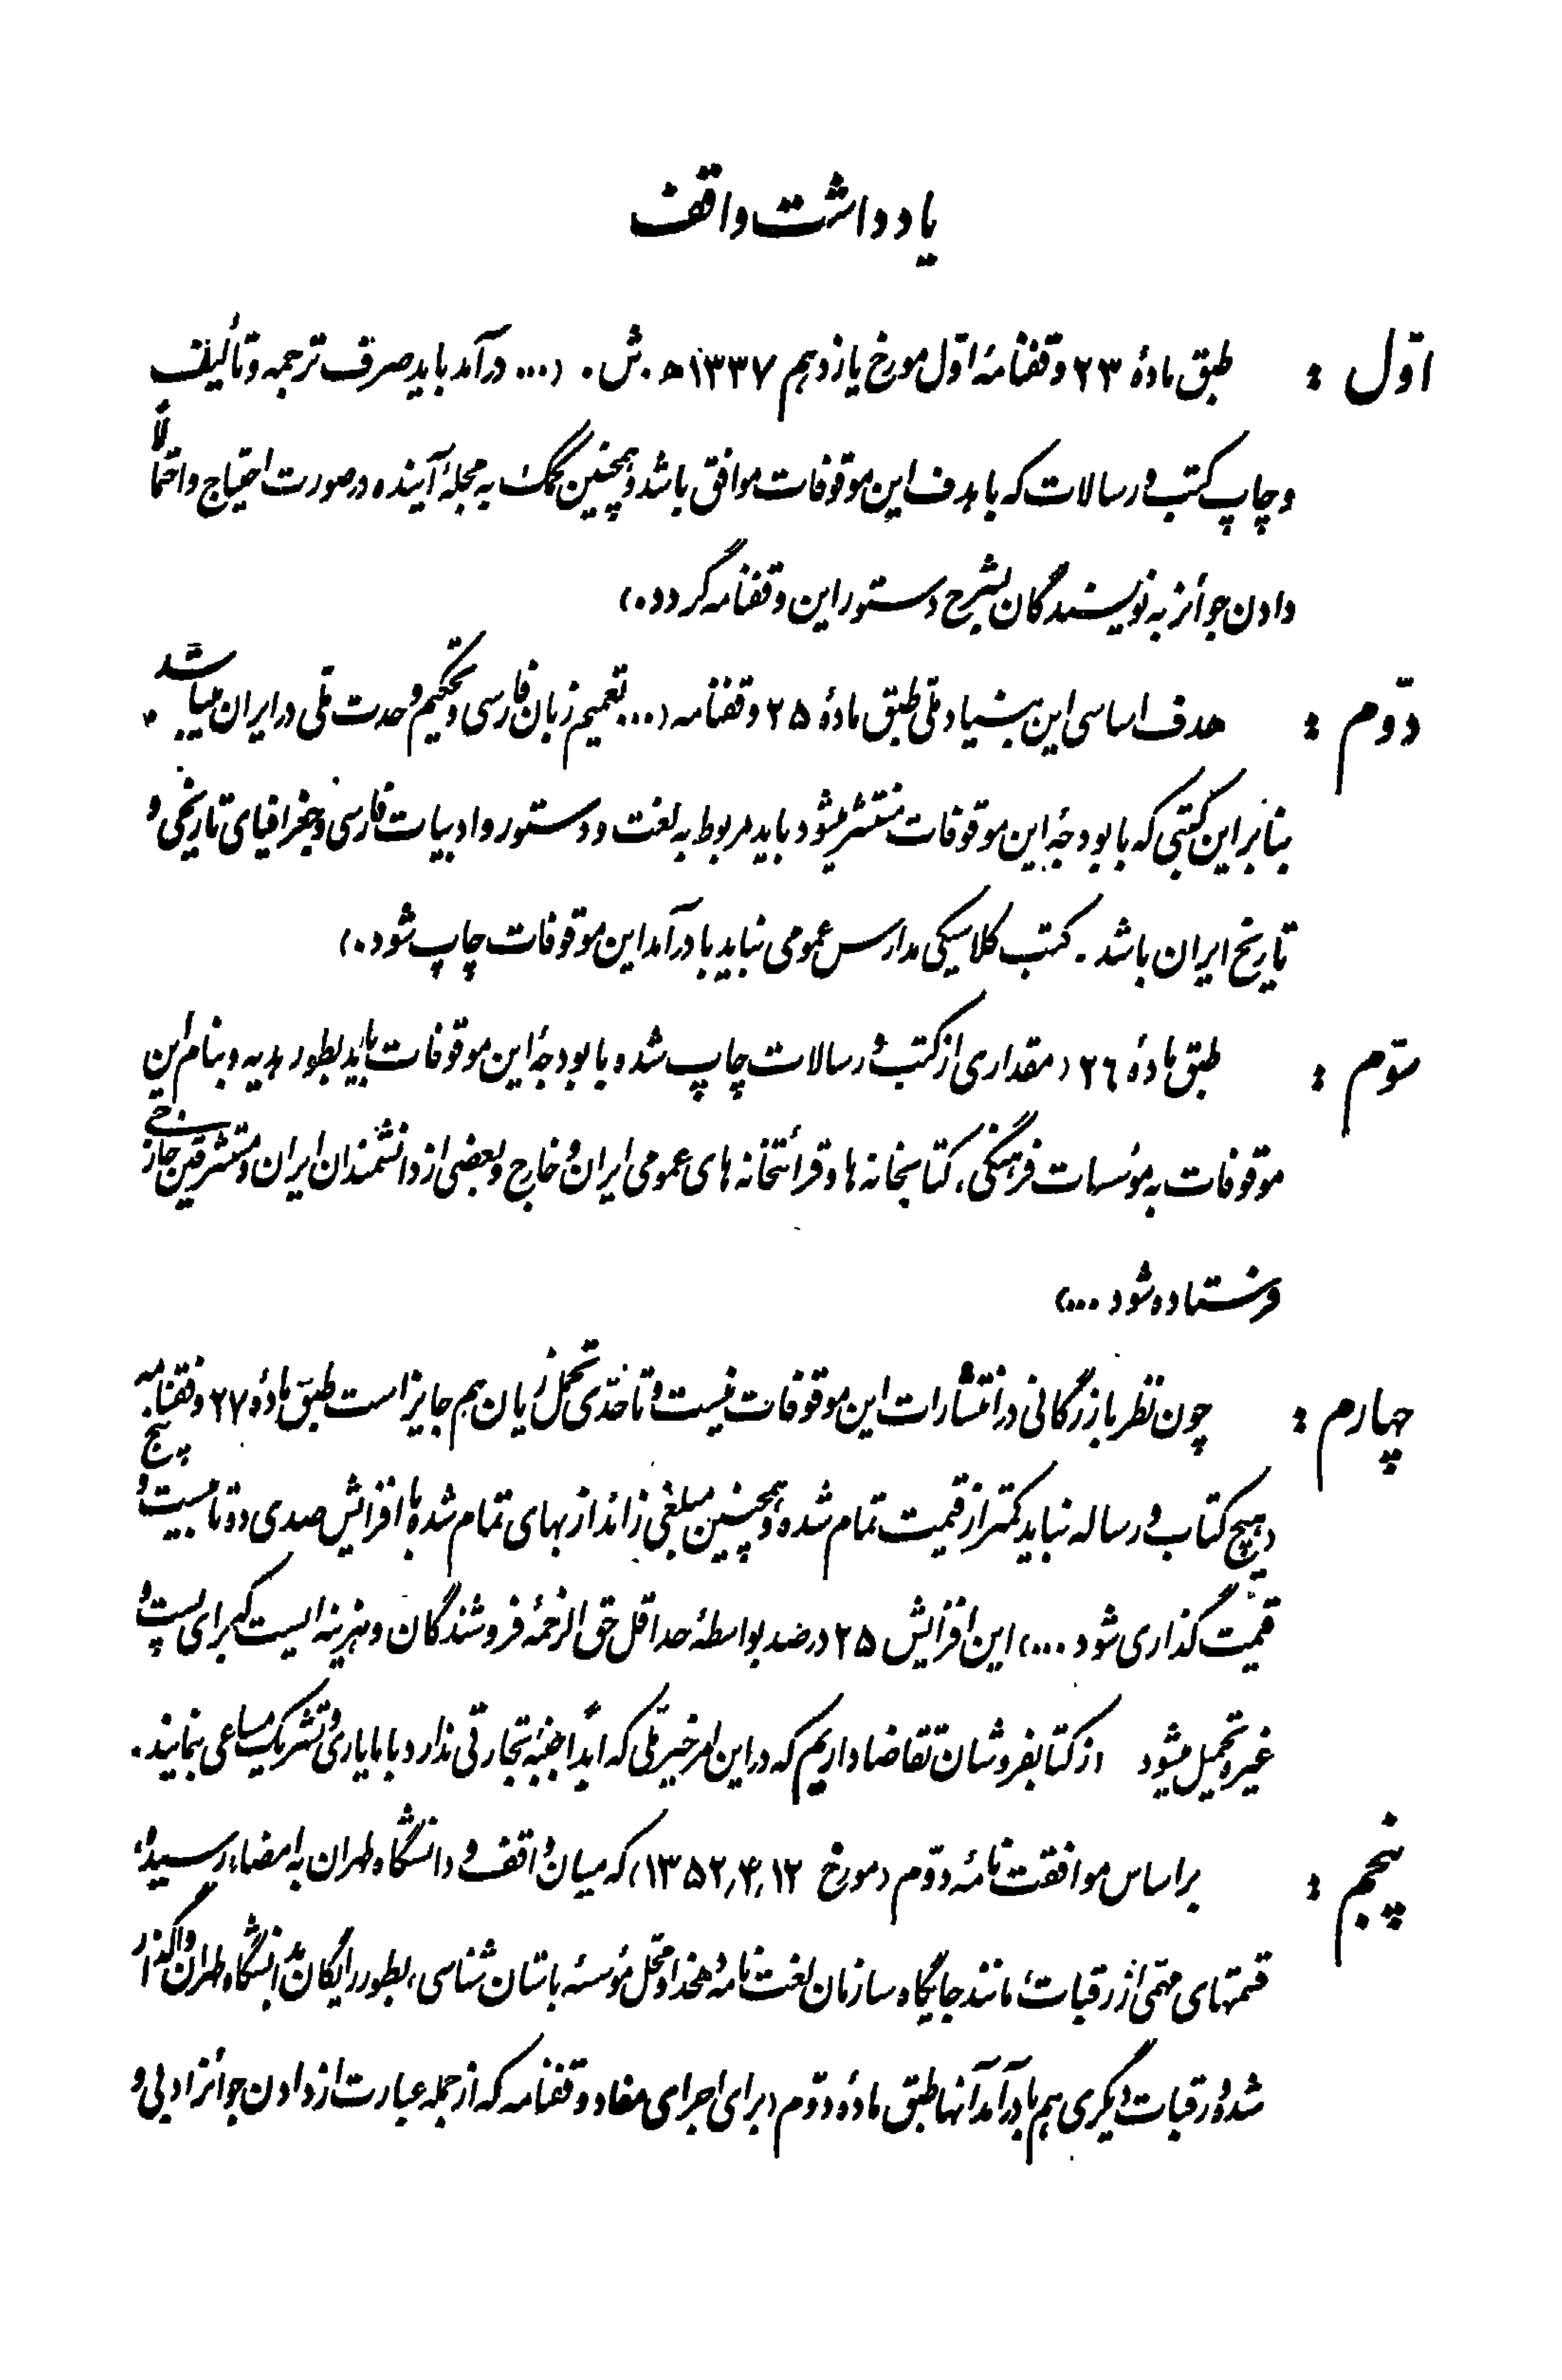 یادداشت واقف
اوّل : طبق مادهٔ ۲۳ وقفنامهٔ اوّل مورخ یازدهم ۱۳۳۷ ه . ش . (... درآمد باید صرف ترجمه و تألیف
و چاپ کتب و رسالات که با هدف این موقوفات موافق باشد و همچنین کمک به مجلهٔ آینده در صورت احتیاج و احتمالاً
دادن جوائز به نویسندگان بشرح دستور این وقفنامه گردد.)
دوّم : هدف اساسی این بنیاد ملی طبق مادهٔ ۲۵ وقفنامه (... تعمیم زبان فارسی و تحکیم وحدت ملی در ایران میباشد .
بنابراین کتبی که با بودجهٔ این موقوفات منتشر میشود باید مربوط به لغت و دستور و ادبیات فارسی و جغرافیای تاریخی و
تاریخ ایران باشد . کتب کلاسیکی مدارس عمومی نباید با درآمد این موقوفات چاپ شود.)
سوّم : طبق مادهٔ ۲۶ (مقداری از کتب و رسالات چاپ شده با بودجهٔ این موقوفات باید بطور هدیه و بنام این
موقوفات به مؤسسات فرهنگی، کتابخانه ها و قرائتخانه های عمومی ایران و خارج و بعضی از دانشمندان ایران و مستشرقین خارجی
فرستاده شود ...)
چهارم : چون نظر بازرگانی در انتشارات این موقوفات نیست و تا حدّی تحمل زیان هم جایز است طبق مادهٔ ۲۷ وقفنامه
(هیچ کتاب و رساله نباید کمتر از قیمت تمام شده و همچنین مبلغی زائد از بهای تمام شده با افزایش صدی ده تا بیست و پنج
قیمت گذاری شود ...) این افزایش ۲۵ درصد بواسطهٔ حداقل حق الزحمهٔ فروشندگان و هزینه ایست که برای پست و
غیره تحمیل میشود از کتابفروشان تقاضا داریم که در این امر خیر ملی که ابداً جنبهٔ تجارتی ندارد با ما یاری و تشریک مساعی بنمایند .
پنجم : بر اساس موافقت نامهٔ دوّم (مورخ ۱۳۵۲٫۴٫۱۲) که میان واقف و دانشگاه طهران به امضاء رسید،
قسمتهای مهمّی از رقبات، مانند جایگاه سازمان لغت نامهٔ دهخدا و محل مؤسسهٔ باستان شناسی، بطور رایگان بدانشگاه طهران واگذار
شد و رقبات دیگری هم با درآمد آنها طبق مادهٔ دوّم (برای اجرای مفاد وقفنامه که از جمله عبارت از دادن جوائز ادبی و